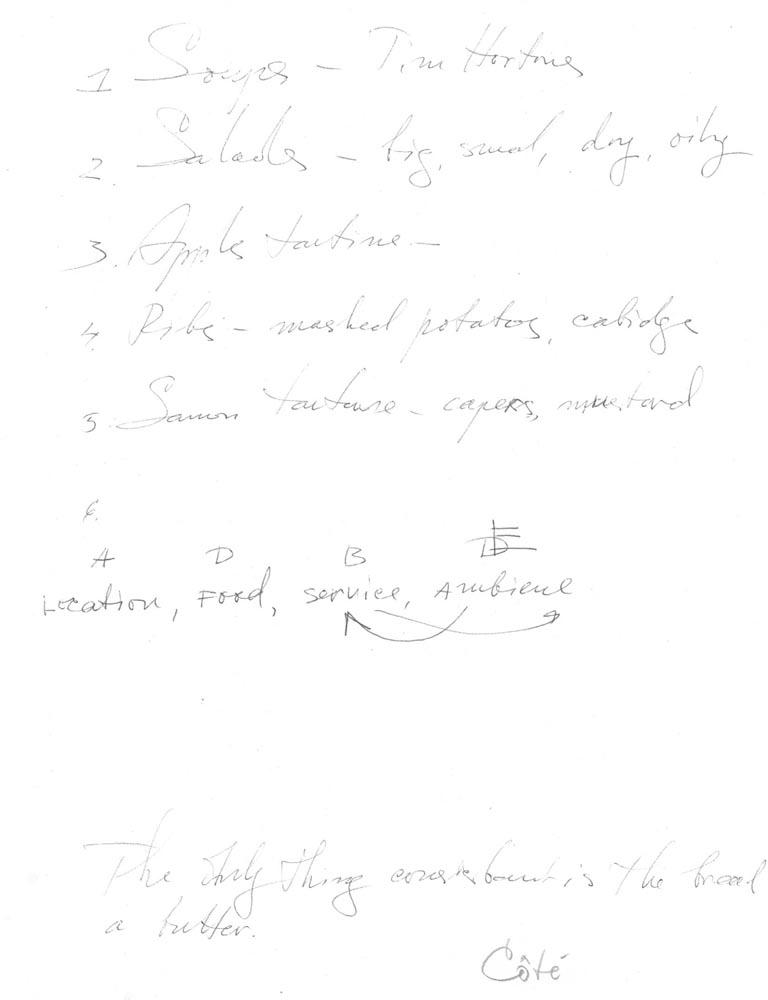 1 Soups - Tim Hortons
2. Salades - big, smal, dry, oily
3. Apple tartine -
4. Ribs - mashed potatos, cabidge
5. Samon tartare - capers, mustard
6.
A D B E
Location, Food, service, Ambience
The only thing consistant is the bread
a butter.
Côté